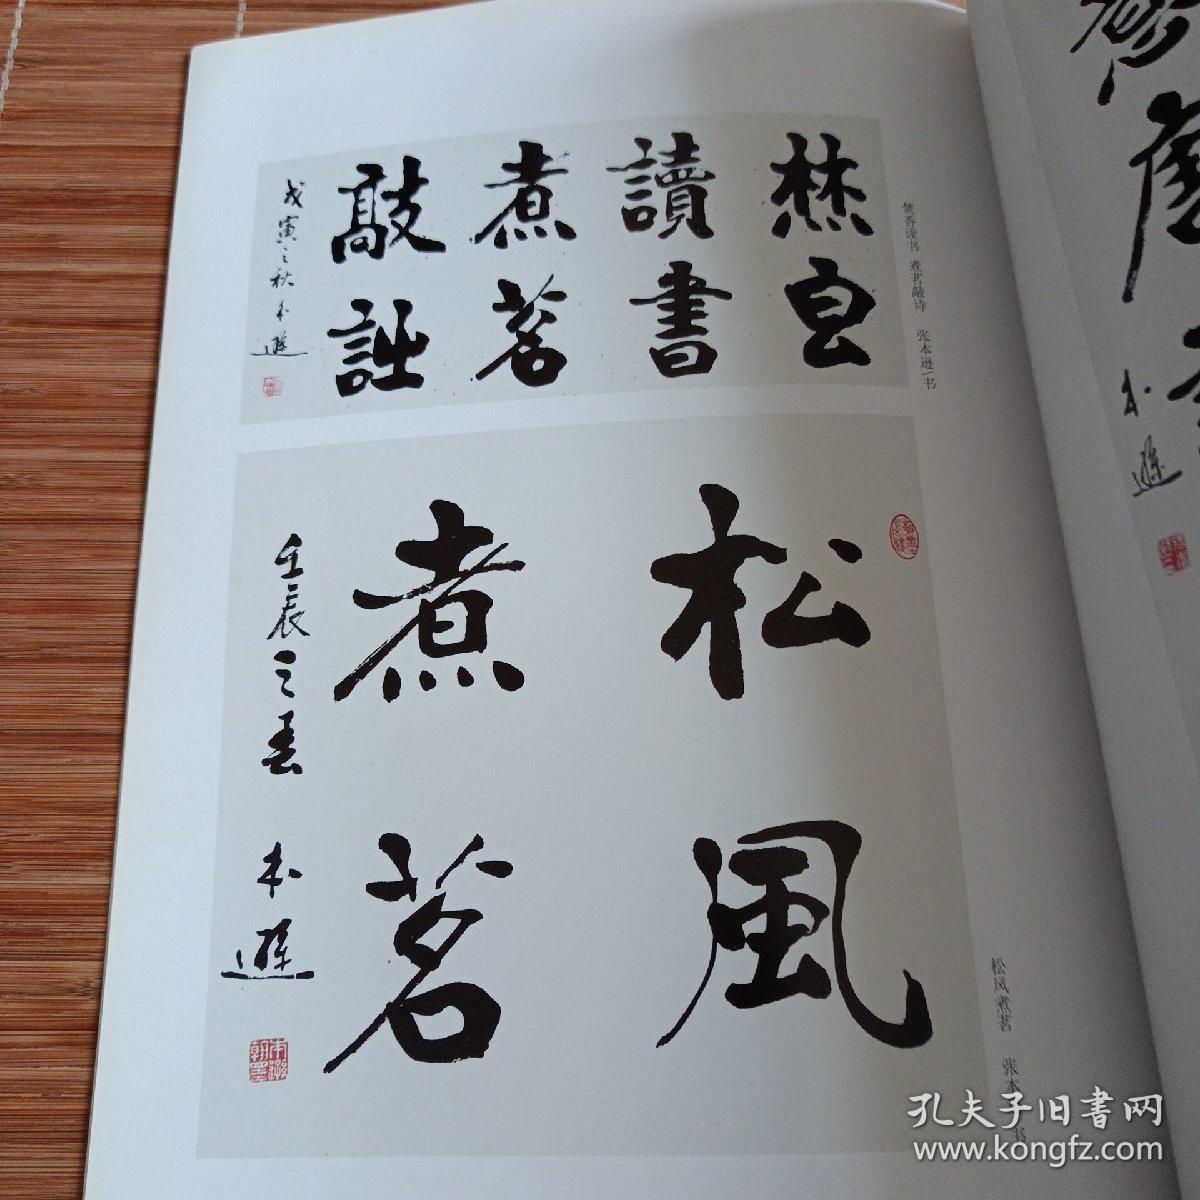 焚香
讀書
煮茗
敲詩
戊寅之秋 本遜
焚香读书 煮茗敲诗 张本逊/书
松風
煮茗
壬辰之春 本遜
本遜翰墨
松风煮茗 张本
书
本遜
孔夫子旧書网
www.kongfz.com